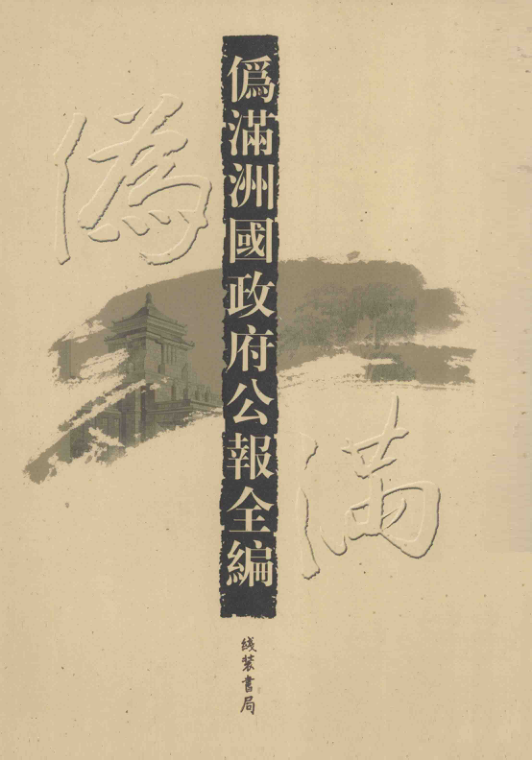 偽滿洲國政府公報全編
偽
满
线装書局